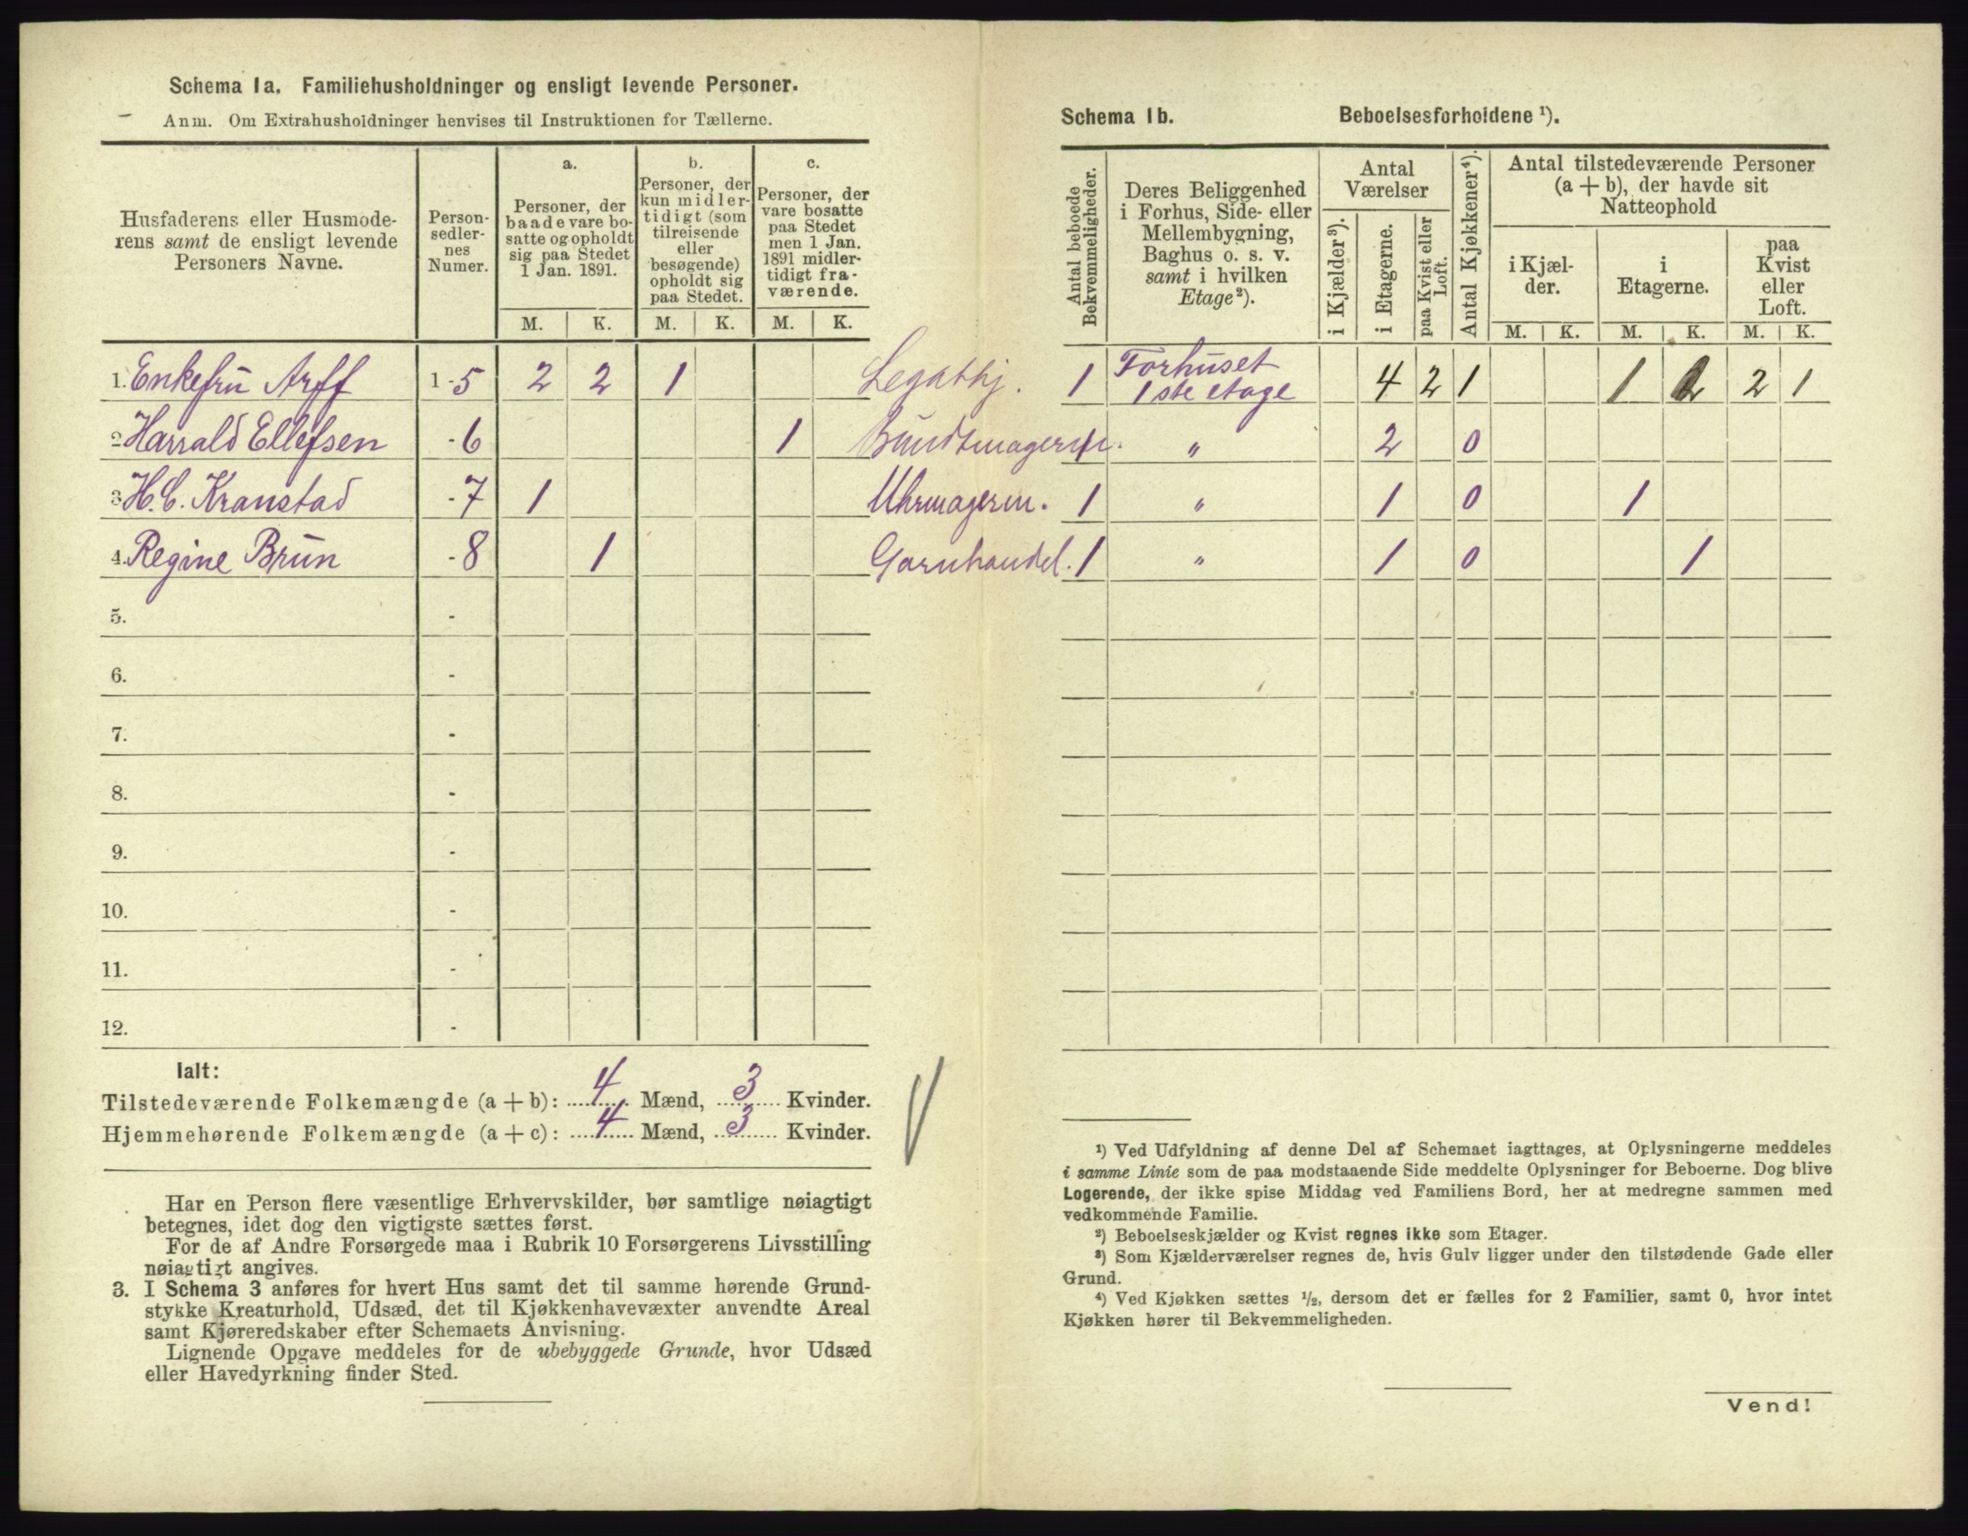 Schema 1a. Familiehusholdninger og ensligt levende Personer.
Anm. Om Extrahusholdninger henvises til Instruktionen for Tællerne.
Husfaderens eller Husmode-
rens samt de ensligt levende
Personers Navne.
Person-
sedler-
nes
Numer.
a.
Personer, der
baade vare bo-
satte og opholdt
sig paa Stedet
1 Jan. 1891.
b.
Personer, der
kun midler-
tidigt (som
tilreisende
eller
besøgende)
opholdt sig
paa Stedet.
c.
Personer, der
vare bosatte
paa Stedet
men 1 Jan.
1891 midler-
tidigt fra-
værende.
M. K. M. K. M. K.
1. Enkefru Arff 1 - 5 2 2 1 Legathj.
2 Harrald Ellefsen - 6 1 Bundtmagerm.
3 H.C. Kranstad - 7 1 Uhrmagerm.
4. Regine Brun - 8 1 Garnhandel.
5. -
6. -
7. -
8. -
9. -
10. -
11. -
12. -
Ialt:
Tilstedeværende Folkemængde (a + b): 4 Mænd, 3 Kvinder.
Hjemmehørende Folkemængde (a + c): 4 Mænd, 3 Kvinder.
Har en Person flere væsentlige Erhvervskilder, bør samtlige nøiagtigt
betegnes, idet dog den vigtigste sættes først.
For de af Andre Forsørgede maa i Rubrik 10 Forsørgerens Livsstilling
nøiagtigt angives.
3. I Schema 3 anføres for hvert Hus samt det til samme hørende Grund-
stykke Kreaturhold, Udsæd, det til Kjøkkenhavevæxter anvendte Areal
samt Kjøreredskaber efter Schemaets Anvisning.
Lignende Opgave meddeles for de ubebyggede Grunde, hvor Udsæd
eller Havedyrkning finder Sted.
Schema 1b. Beboelsesforholdene ¹).
Antal beboede
Bekvemmeligheder.
Deres Beliggenhed
i Forhus, Side- eller
Mellembygning,
Baghus o. s. v.
samt i hvilken
Etage²).
Antal
Værelser
i Kjælder³).
i Etagerne.
paa Kvist eller
Loft.
Antal Kjøkkener⁴).
Antal tilstedeværende Personer
(a + b), der havde sit
Natteophold
i Kjæl-
der.
i
Etagerne.
paa
Kvist
eller
Loft.
M. K. M. K. M. K.
1 Forhuset
1ste etage 4 2 1 1 2 2 1
1 „ 2 0
1 „ 1 0 1
1 „ 1 0 1
¹) Ved Udfyldning af denne Del af Schemaet iagttages, at Oplysningerne meddeles
i samme Linie som de paa modstaaende Side meddelte Oplysninger for Beboerne. Dog blive
Logerende, der ikke spise Middag ved Familiens Bord, her at medregne sammen med
vedkommende Familie.
²) Beboelseskjælder og Kvist regnes ikke som Etager.
³) Som Kjælderværelser regnes de, hvis Gulv ligger under den tilstødende Gade eller
Grund.
⁴) Ved Kjøkken sættes ½, dersom det er fælles for 2 Familier, samt 0, hvor intet
Kjøkken hører til Bekvemmeligheden.
Vend!